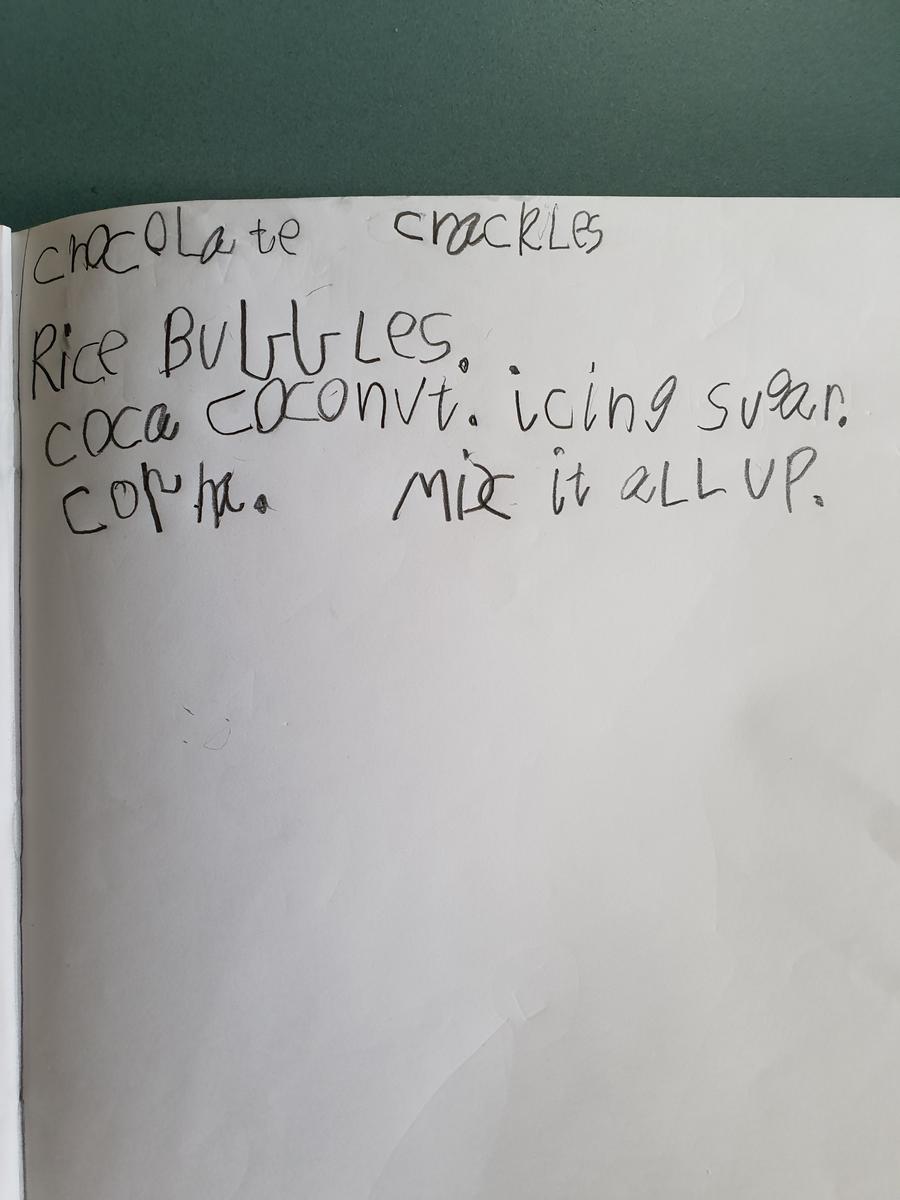 chocolate crackles
Rice Bubbles.
coca coconut. icing sugar.
copha. mix it all up.